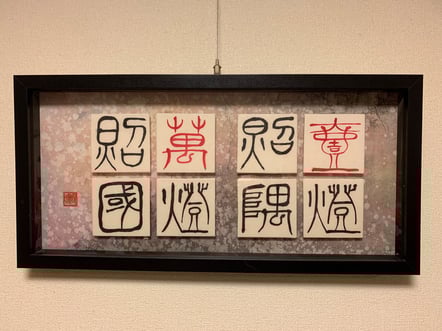 壹燈
照隅
萬燈
照國